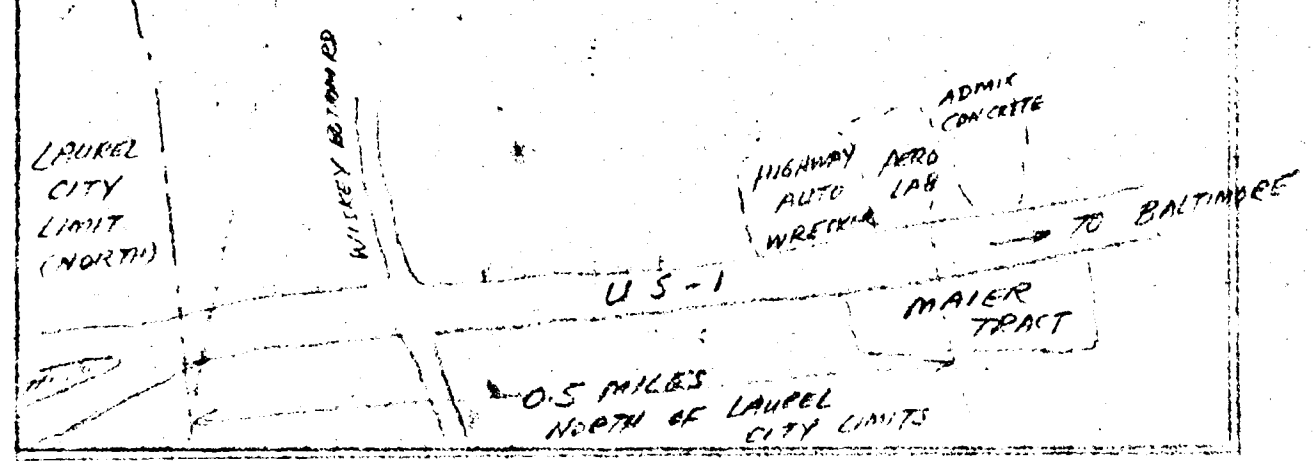 LAUREL
CITY
LIMIT
(NORTH)
WISKEY BOTTOM RD
HIGHWAY
AUTO
WRECKER
AERO
LAB
ADMIX
CONCRETE
TO BALTIMORE
U S-1
MAIER
TRACT
0.5 MILES
NORTH OF LAUREL
CITY LIMITS